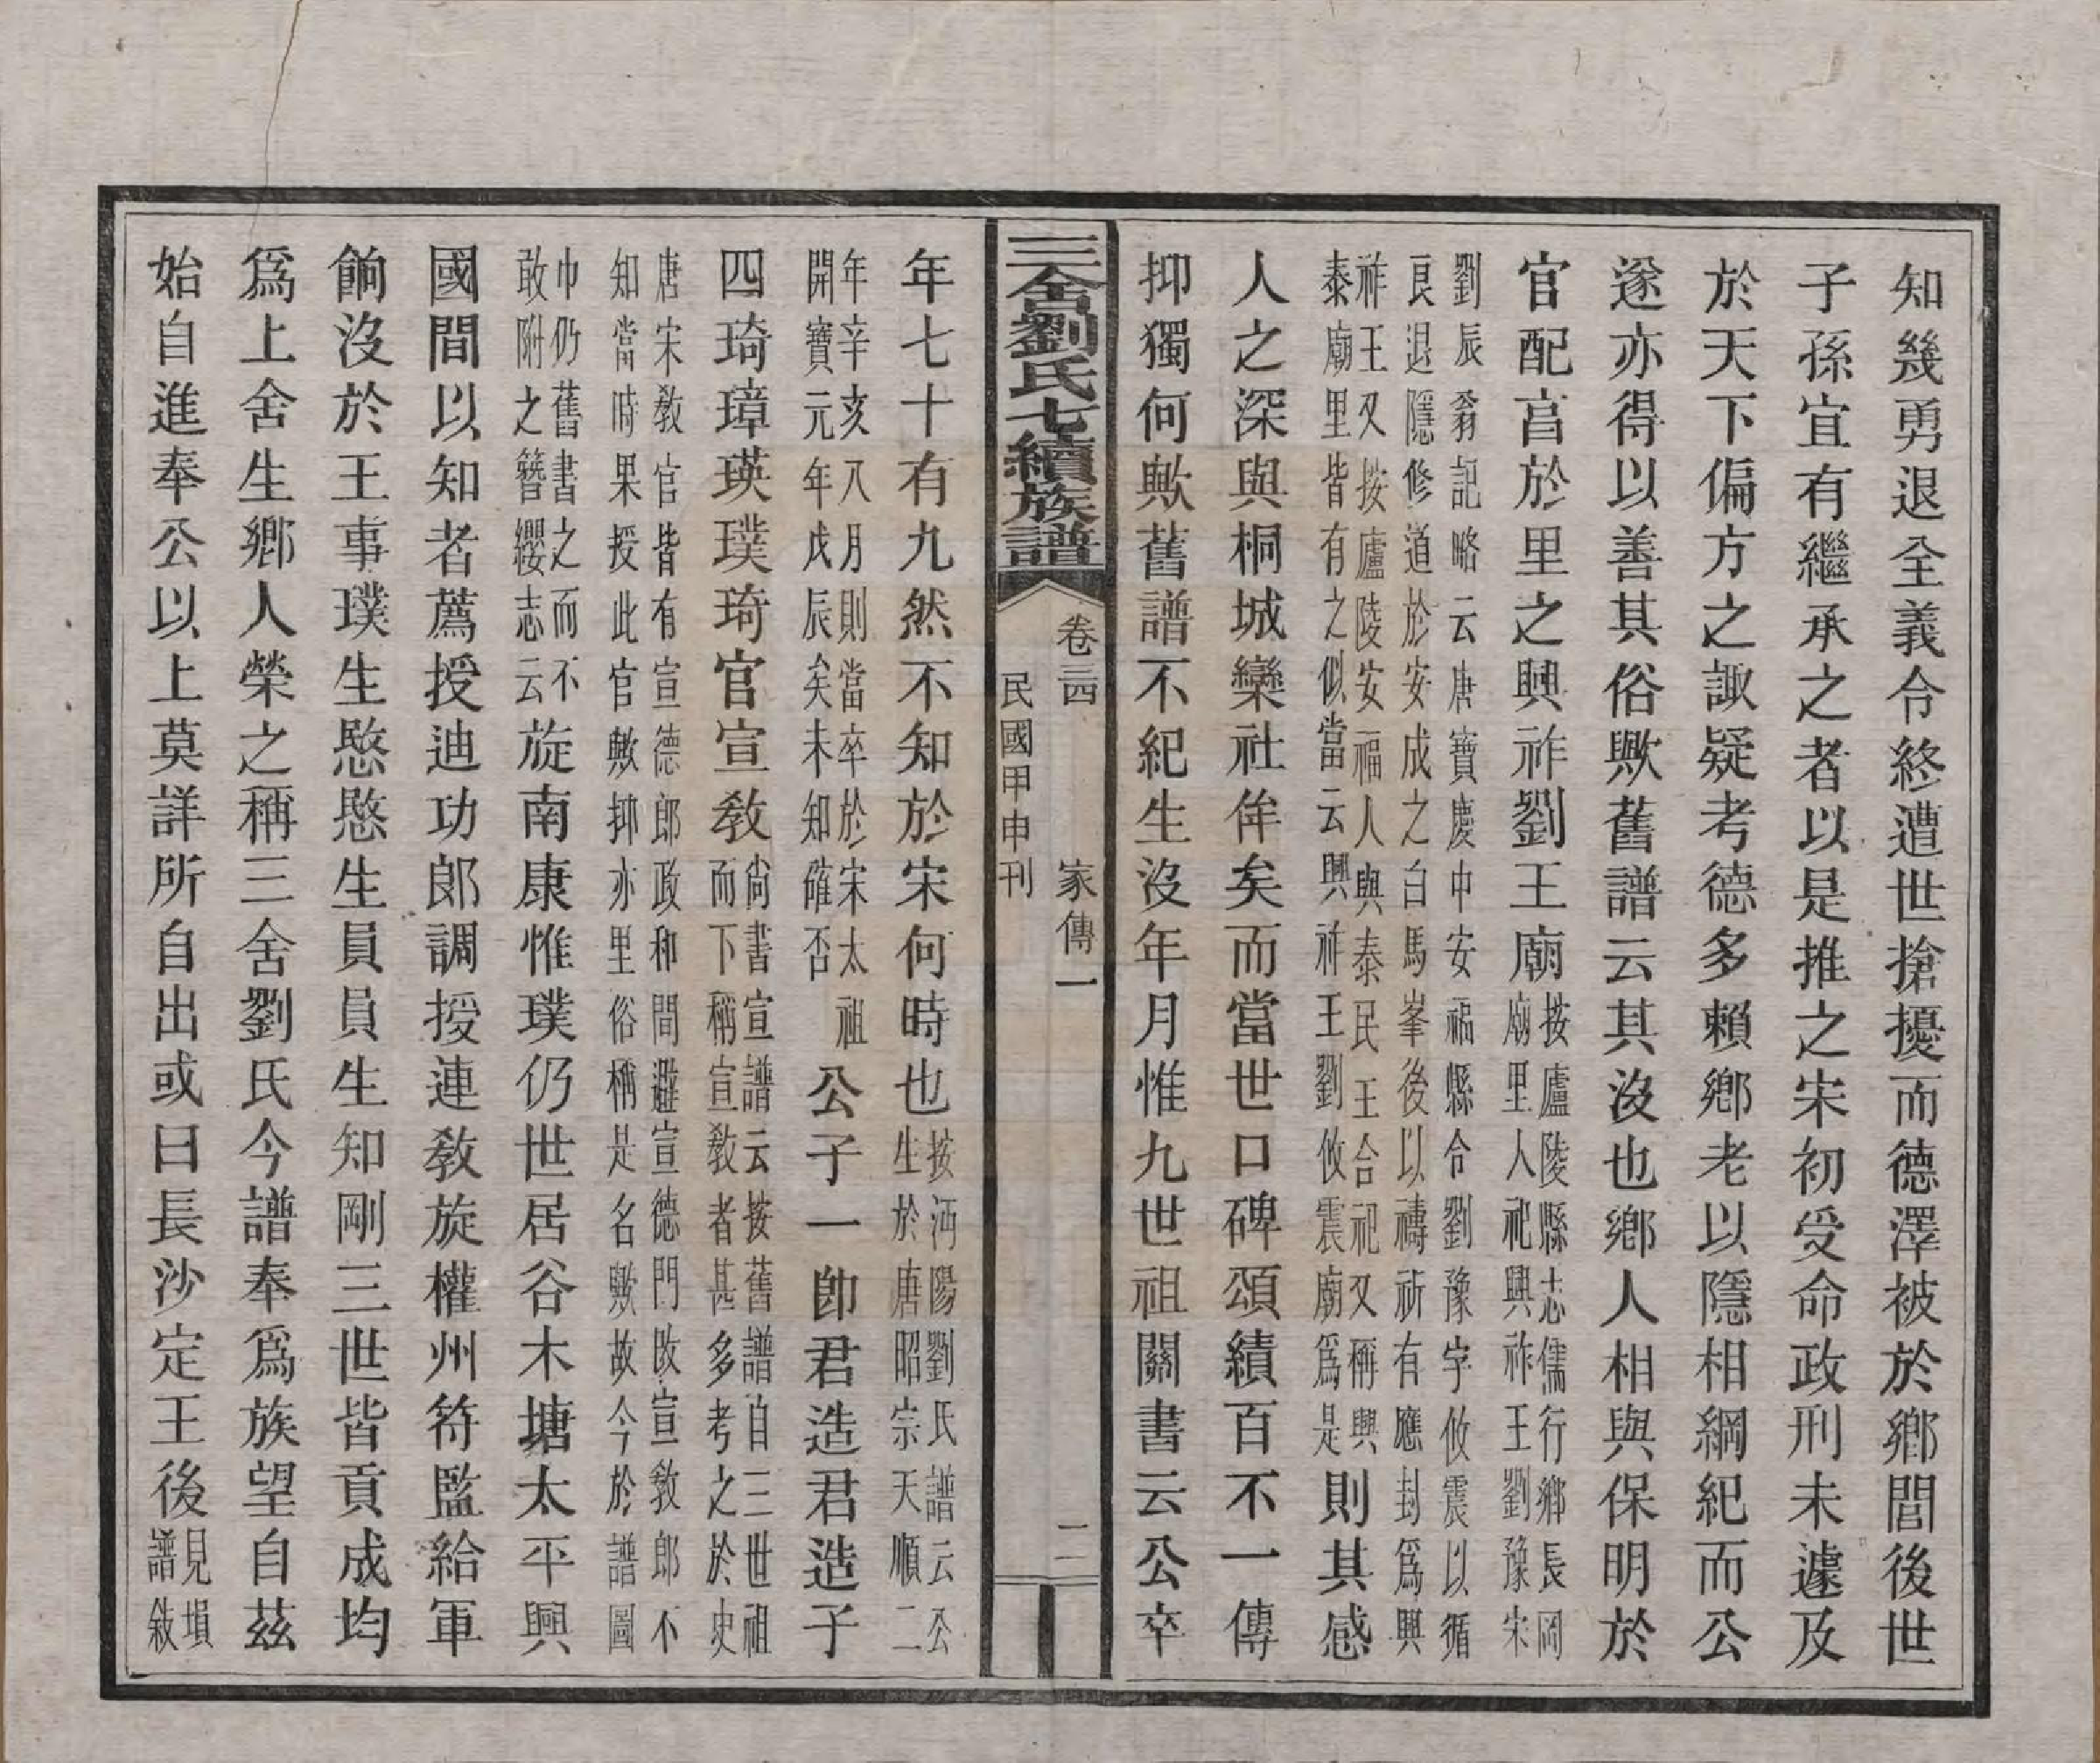 知幾勇退全義令終遭世搶擾而德澤被於鄉閭後世
子孫宜有繼承之者以是推之宋初受命政刑未遽及
於天下偏方之諏疑考德多賴鄉老以隱相綱紀而公
遂亦得以善其俗歟舊譜云其沒也鄉人相與保明於
官配亯於里之興祚劉王廟按廬陵縣志儒行鄉長岡
廟里人祀興祚王劉豫宋
劉辰翁記略云唐寶慶中安福縣令劉豫字攸震以循
良退隱修道於安成之白馬峯後以禱祈有應封爲興
祚王又按廬陵安福人與泰民王合祀又稱興
泰廟里皆有之似當云興祚王劉攸震廟爲是則其感
人之深與桐城欒社侔矣而當世口碑頌績百不一傳
抑獨何歟舊譜不紀生沒年月惟九世祖關書云公卒
三舍劉氏七續族譜
卷三四 家傳一 二
民國甲申刊
年七十有九然不知於宋何時也按沔陽劉氏譜云公
生於唐昭宗天順二
年辛亥八月則當卒於宋太祖
開寶元年戊辰矣未知確否公子一卽君造君造子
四琦璋瑛璞琦官宣敎尙書宣譜云按舊譜自三世祖
而下稱宣敎者甚多考之於史
唐宋敎官皆有宣德郎政和間避宣德門改宣敎郎不
知當時果授此官歟抑亦里俗稱是名歟故今於譜圖
巾仍舊書之而不
敢附之簪纓志云旋南康惟璞仍世居谷木塘太平興
國間以知者薦授迪功郎調授連敎旋權州符監給軍
餉沒於王事璞生愍愍生員員生知剛三世皆貢成均
爲上舍生鄉人榮之稱三舍劉氏今譜奉爲族望自茲
始自進奉公以上莫詳所自出或曰長沙定王後見塤
譜敍